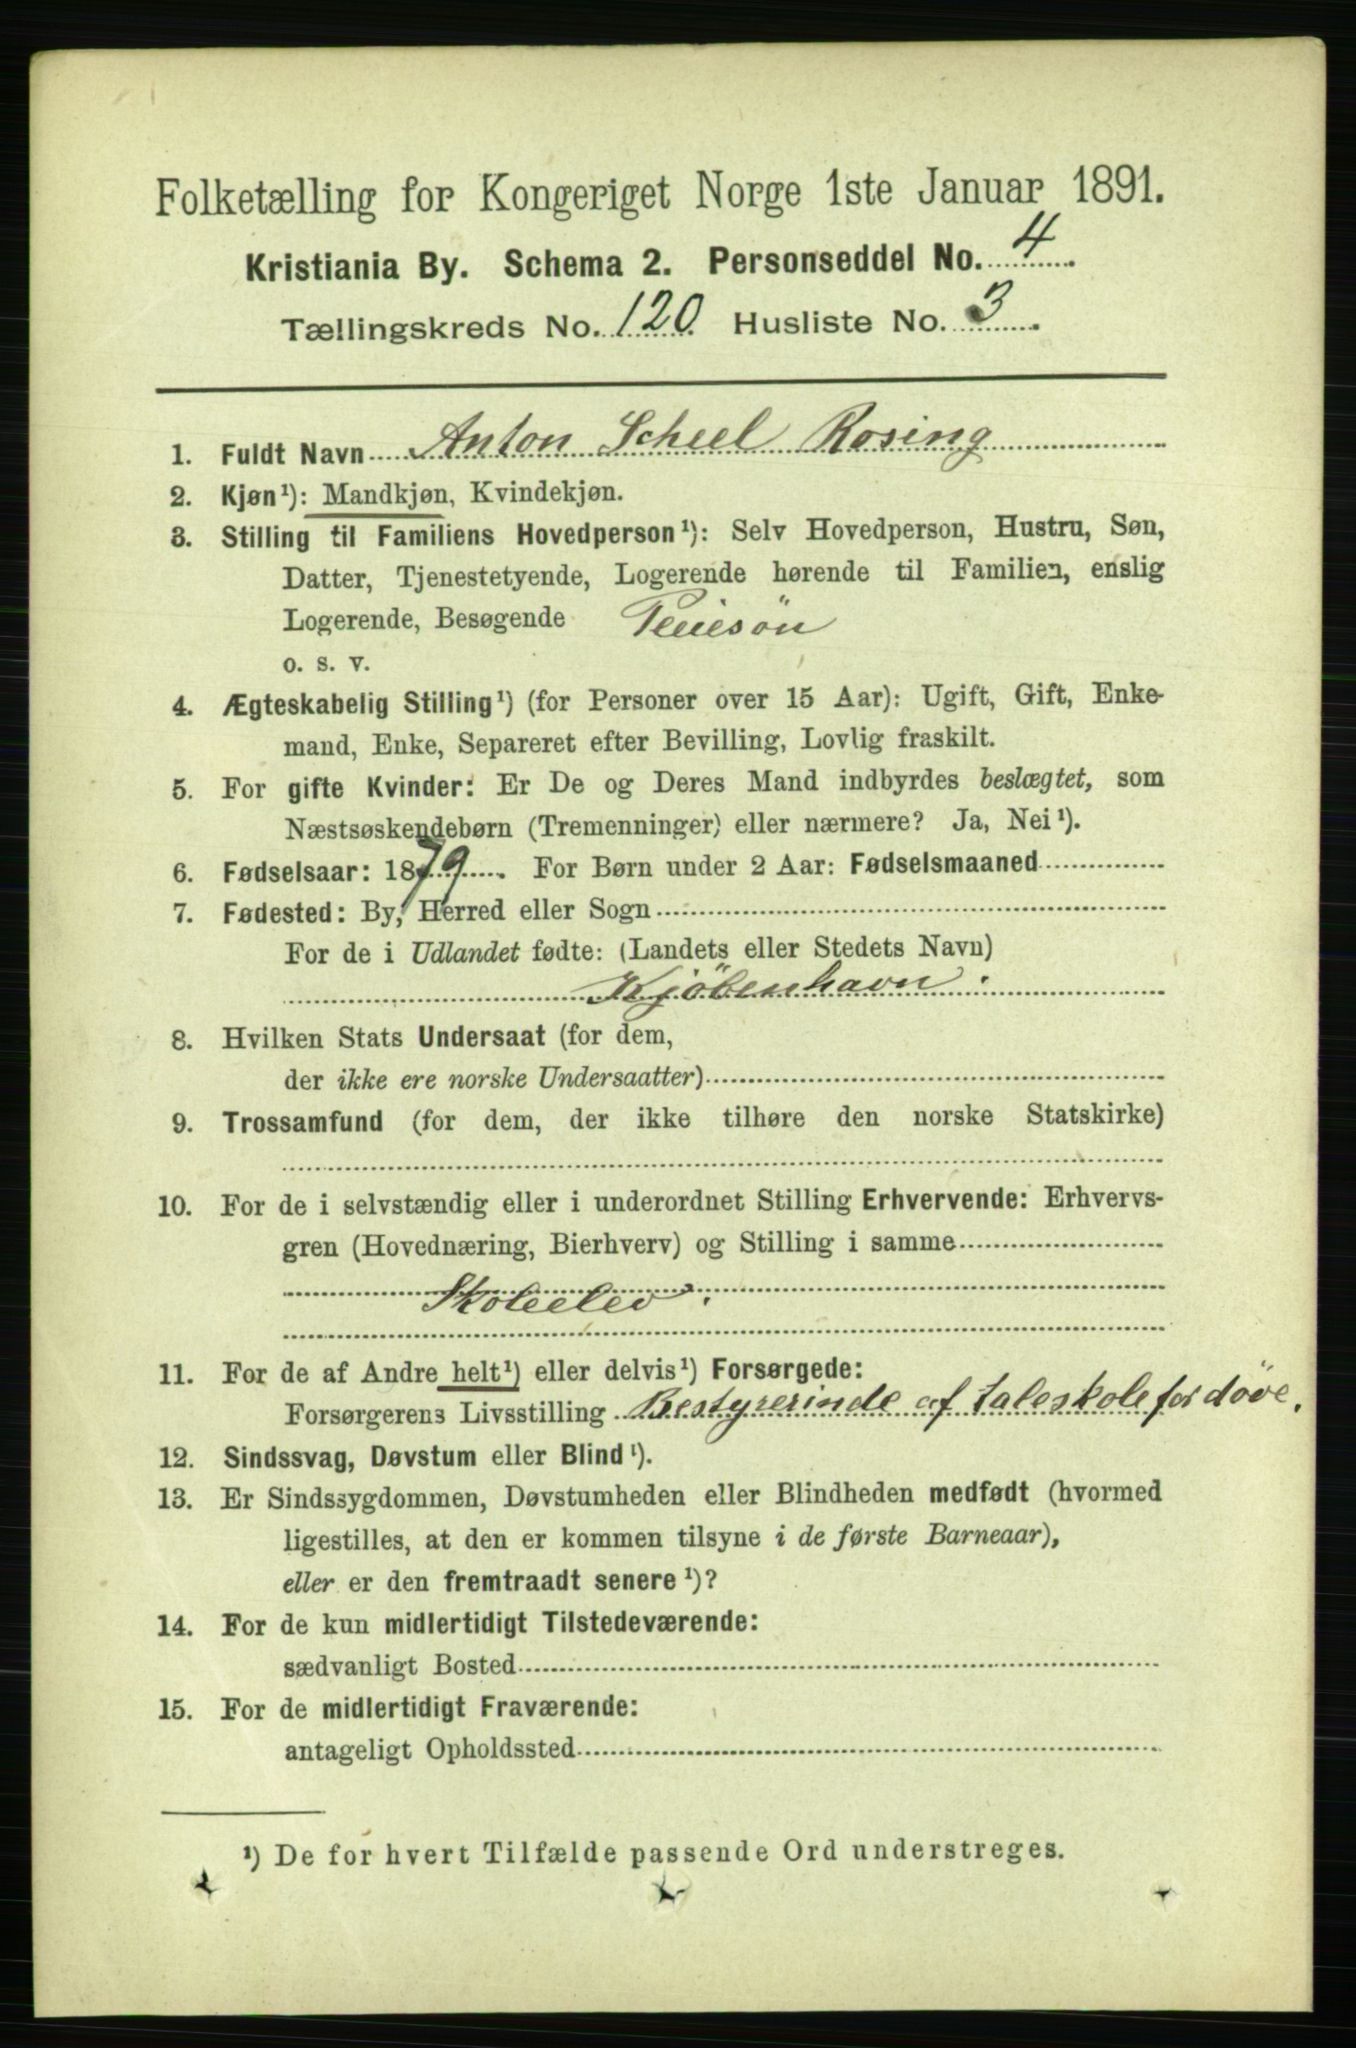 Folketælling for Kongeriget Norge 1ste Januar 1891.
Kristiania By. Schema 2. Personseddel No. 4
Tællingskreds No. 120 Husliste No. 3
1. Fuldt Navn Anton Scheel Rosing
2. Kjøn¹): Mandkjøn, Kvindekjøn.
3. Stilling til Familiens Hovedperson¹): Selv Hovedperson, Hustru, Søn,
Datter, Tjenestetyende, Logerende hørende til Familien, enslig
Logerende, Besøgende Pleiesön
o. s. v.
4. Ægteskabelig Stilling¹) (for Personer over 15 Aar): Ugift, Gift, Enke-
mand, Enke, Separeret efter Bevilling, Lovlig fraskilt.
5. For gifte Kvinder: Er De og Deres Mand indbyrdes beslægtet, som
Næstsøskendebørn (Tremenninger) eller nærmere? Ja, Nei¹).
6. Fødselsaar: 1879. For Børn under 2 Aar: Fødselsmaaned
7. Fødested: By, Herred eller Sogn
For de i Udlandet fødte: (Landets eller Stedets Navn)
Kjöbenhavn.
8. Hvilken Stats Undersaat (for dem,
der ikke ere norske Undersaatter)
9. Trossamfund (for dem, der ikke tilhøre den norske Statskirke)
10. For de i selvstændig eller i underordnet Stilling Erhvervende: Erhvervs-
gren (Hovednæring, Bierhverv) og Stilling i samme
Skoleelev.
11. For de af Andre helt¹) eller delvis¹) Forsørgede:
Forsørgerens Livsstilling Bestyrerinde af taleskole for döve.
12. Sindssvag, Døvstum eller Blind¹).
13. Er Sindssygdommen, Døvstumheden eller Blindheden medfødt (hvormed
ligestilles, at den er kommen tilsyne i de første Barneaar),
eller er den fremtraadt senere¹)?
14. For de kun midlertidigt Tilstedeværende:
sædvanligt Bosted
15. For de midlertidigt Fraværende:
antageligt Opholdssted
¹) De for hvert Tilfælde passende Ord understreges.